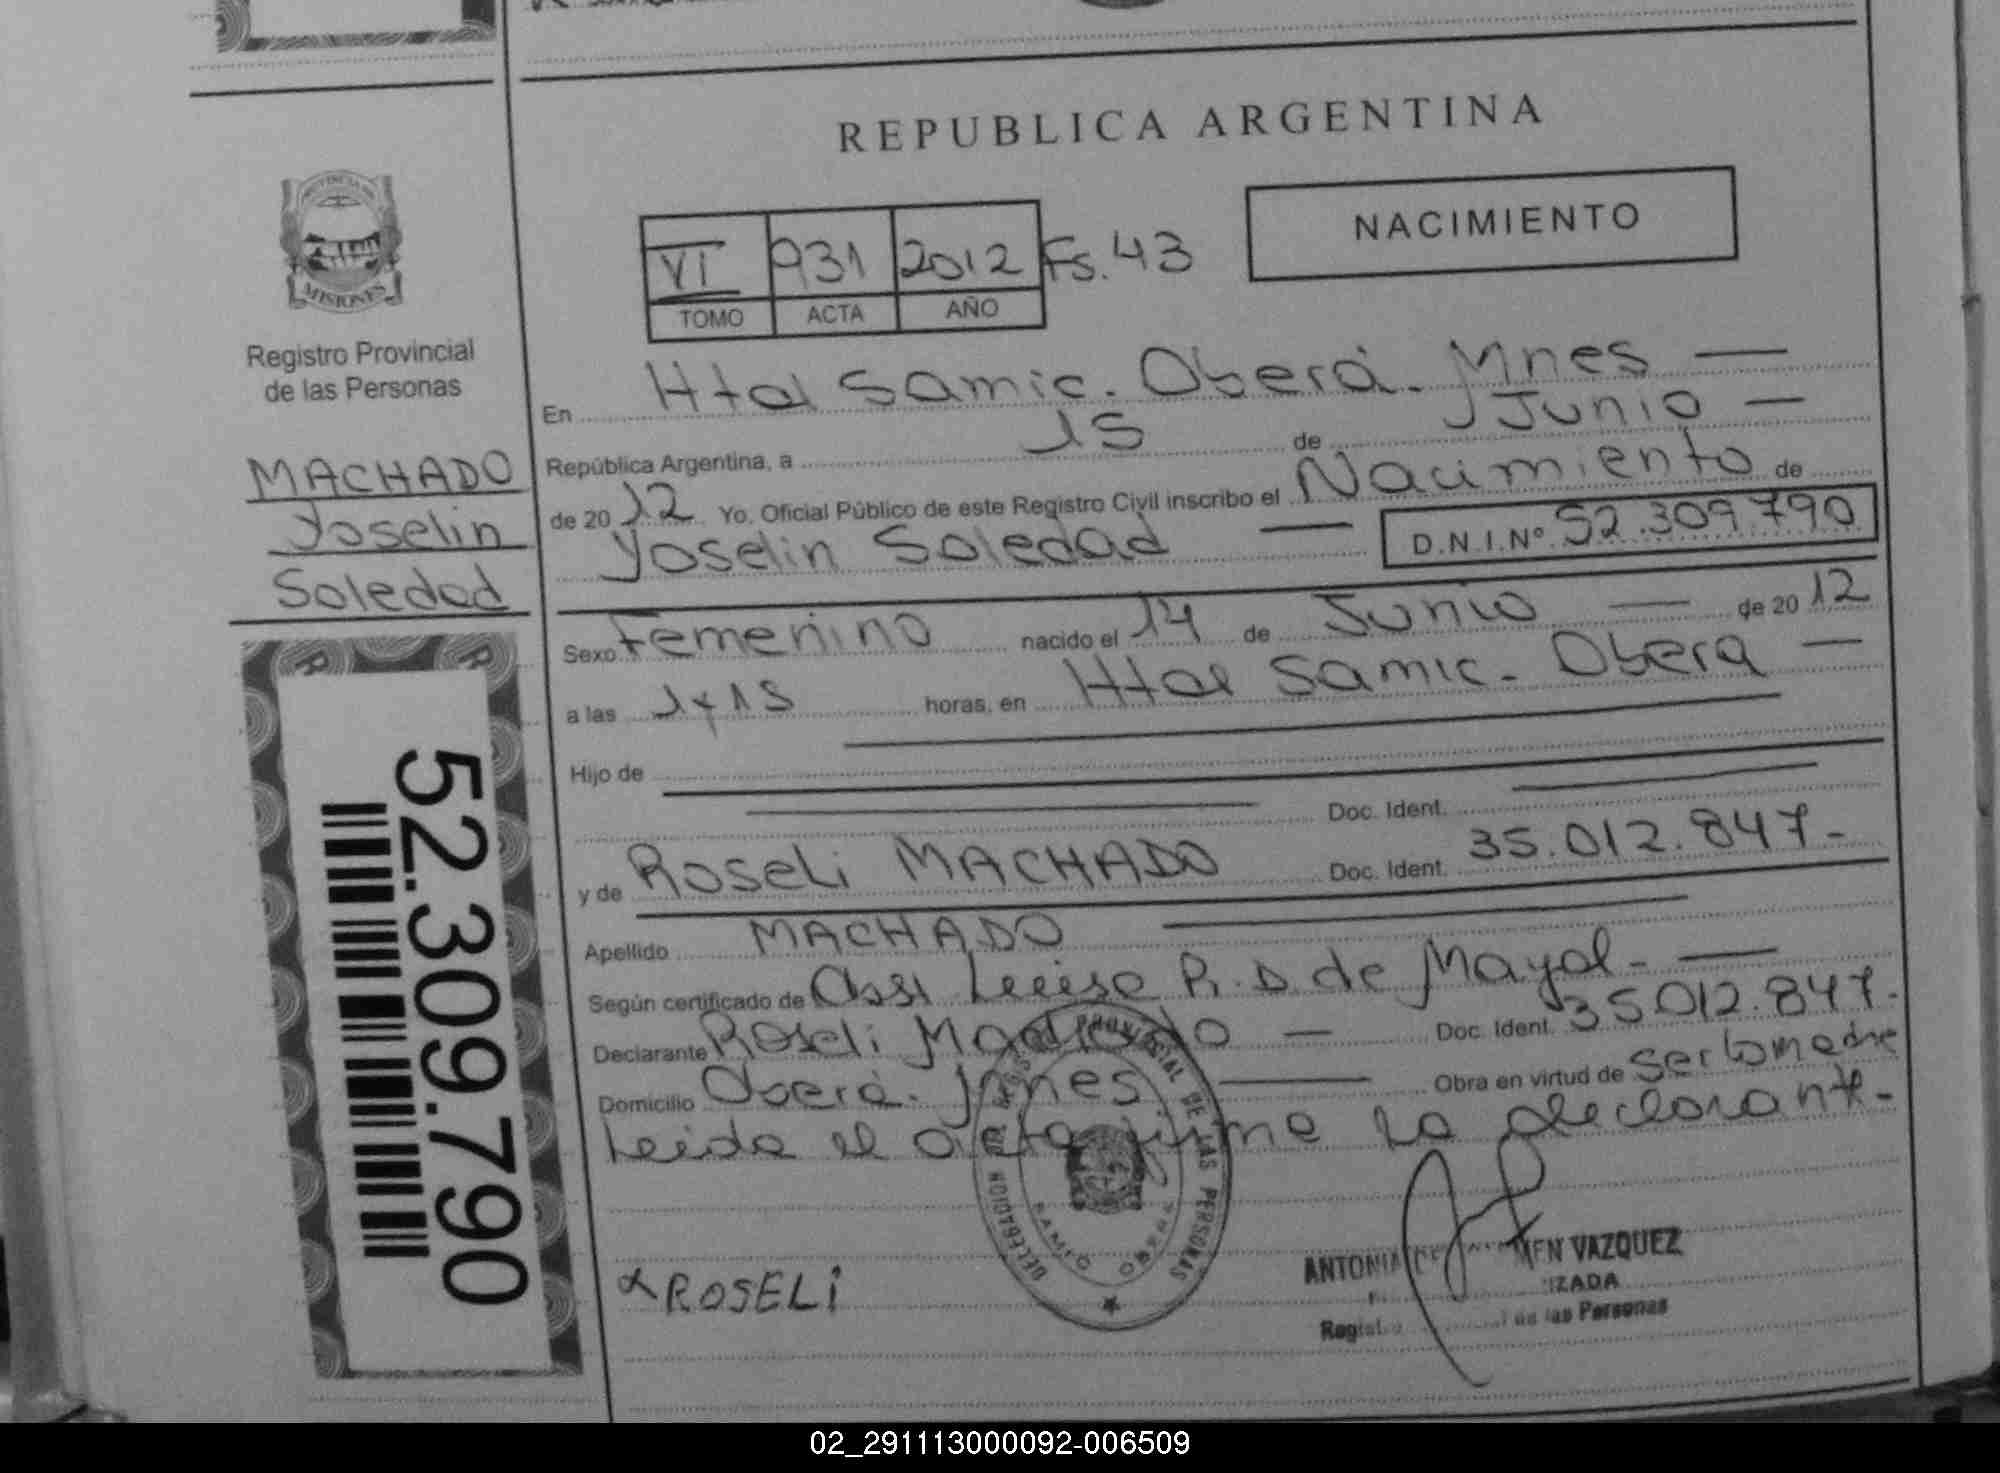 REPUBLICA ARGENTINA
NACIMIENTO
VI 931 2012 Fs. 43
TOMO ACTA AÑO
PROVINCIA DE
MISIONES
Registro Provincial
de las Personas
MACHADO
Yoselin
Soledad
52.309.790
En Htal Samic. Oberá. Mnes
República Argentina, a 15 de Junio
de 2012 Yo, Oficial Público de este Registro Civil inscribo el Nacimiento de
Yoselin Soledad D.N.I.Nº 52.309.790
Sexo Femenino nacido el 14 de Junio de 2012
a las 1715 horas, en Htal Samic. Obera
Hijo de
Doc. Ident.
y de Roseli MACHADO Doc. Ident. 35.012.847.-
Apellido MACHADO
Según certificado de Obst de Mayol.-
Declarante Roseli Machado Doc. Ident. 35012.847.-
Domicilio Oberá. Mnes. Obra en virtud de ser la madre
Leida el acta firma la declarante.-
DELEGACION DEL REGISTRO PROVINCIAL DE LAS PERSONAS
SAMIC OBERA
ROSELi
ANTONIA VAZQUEZ
de las Personas
02_291113000092-006509